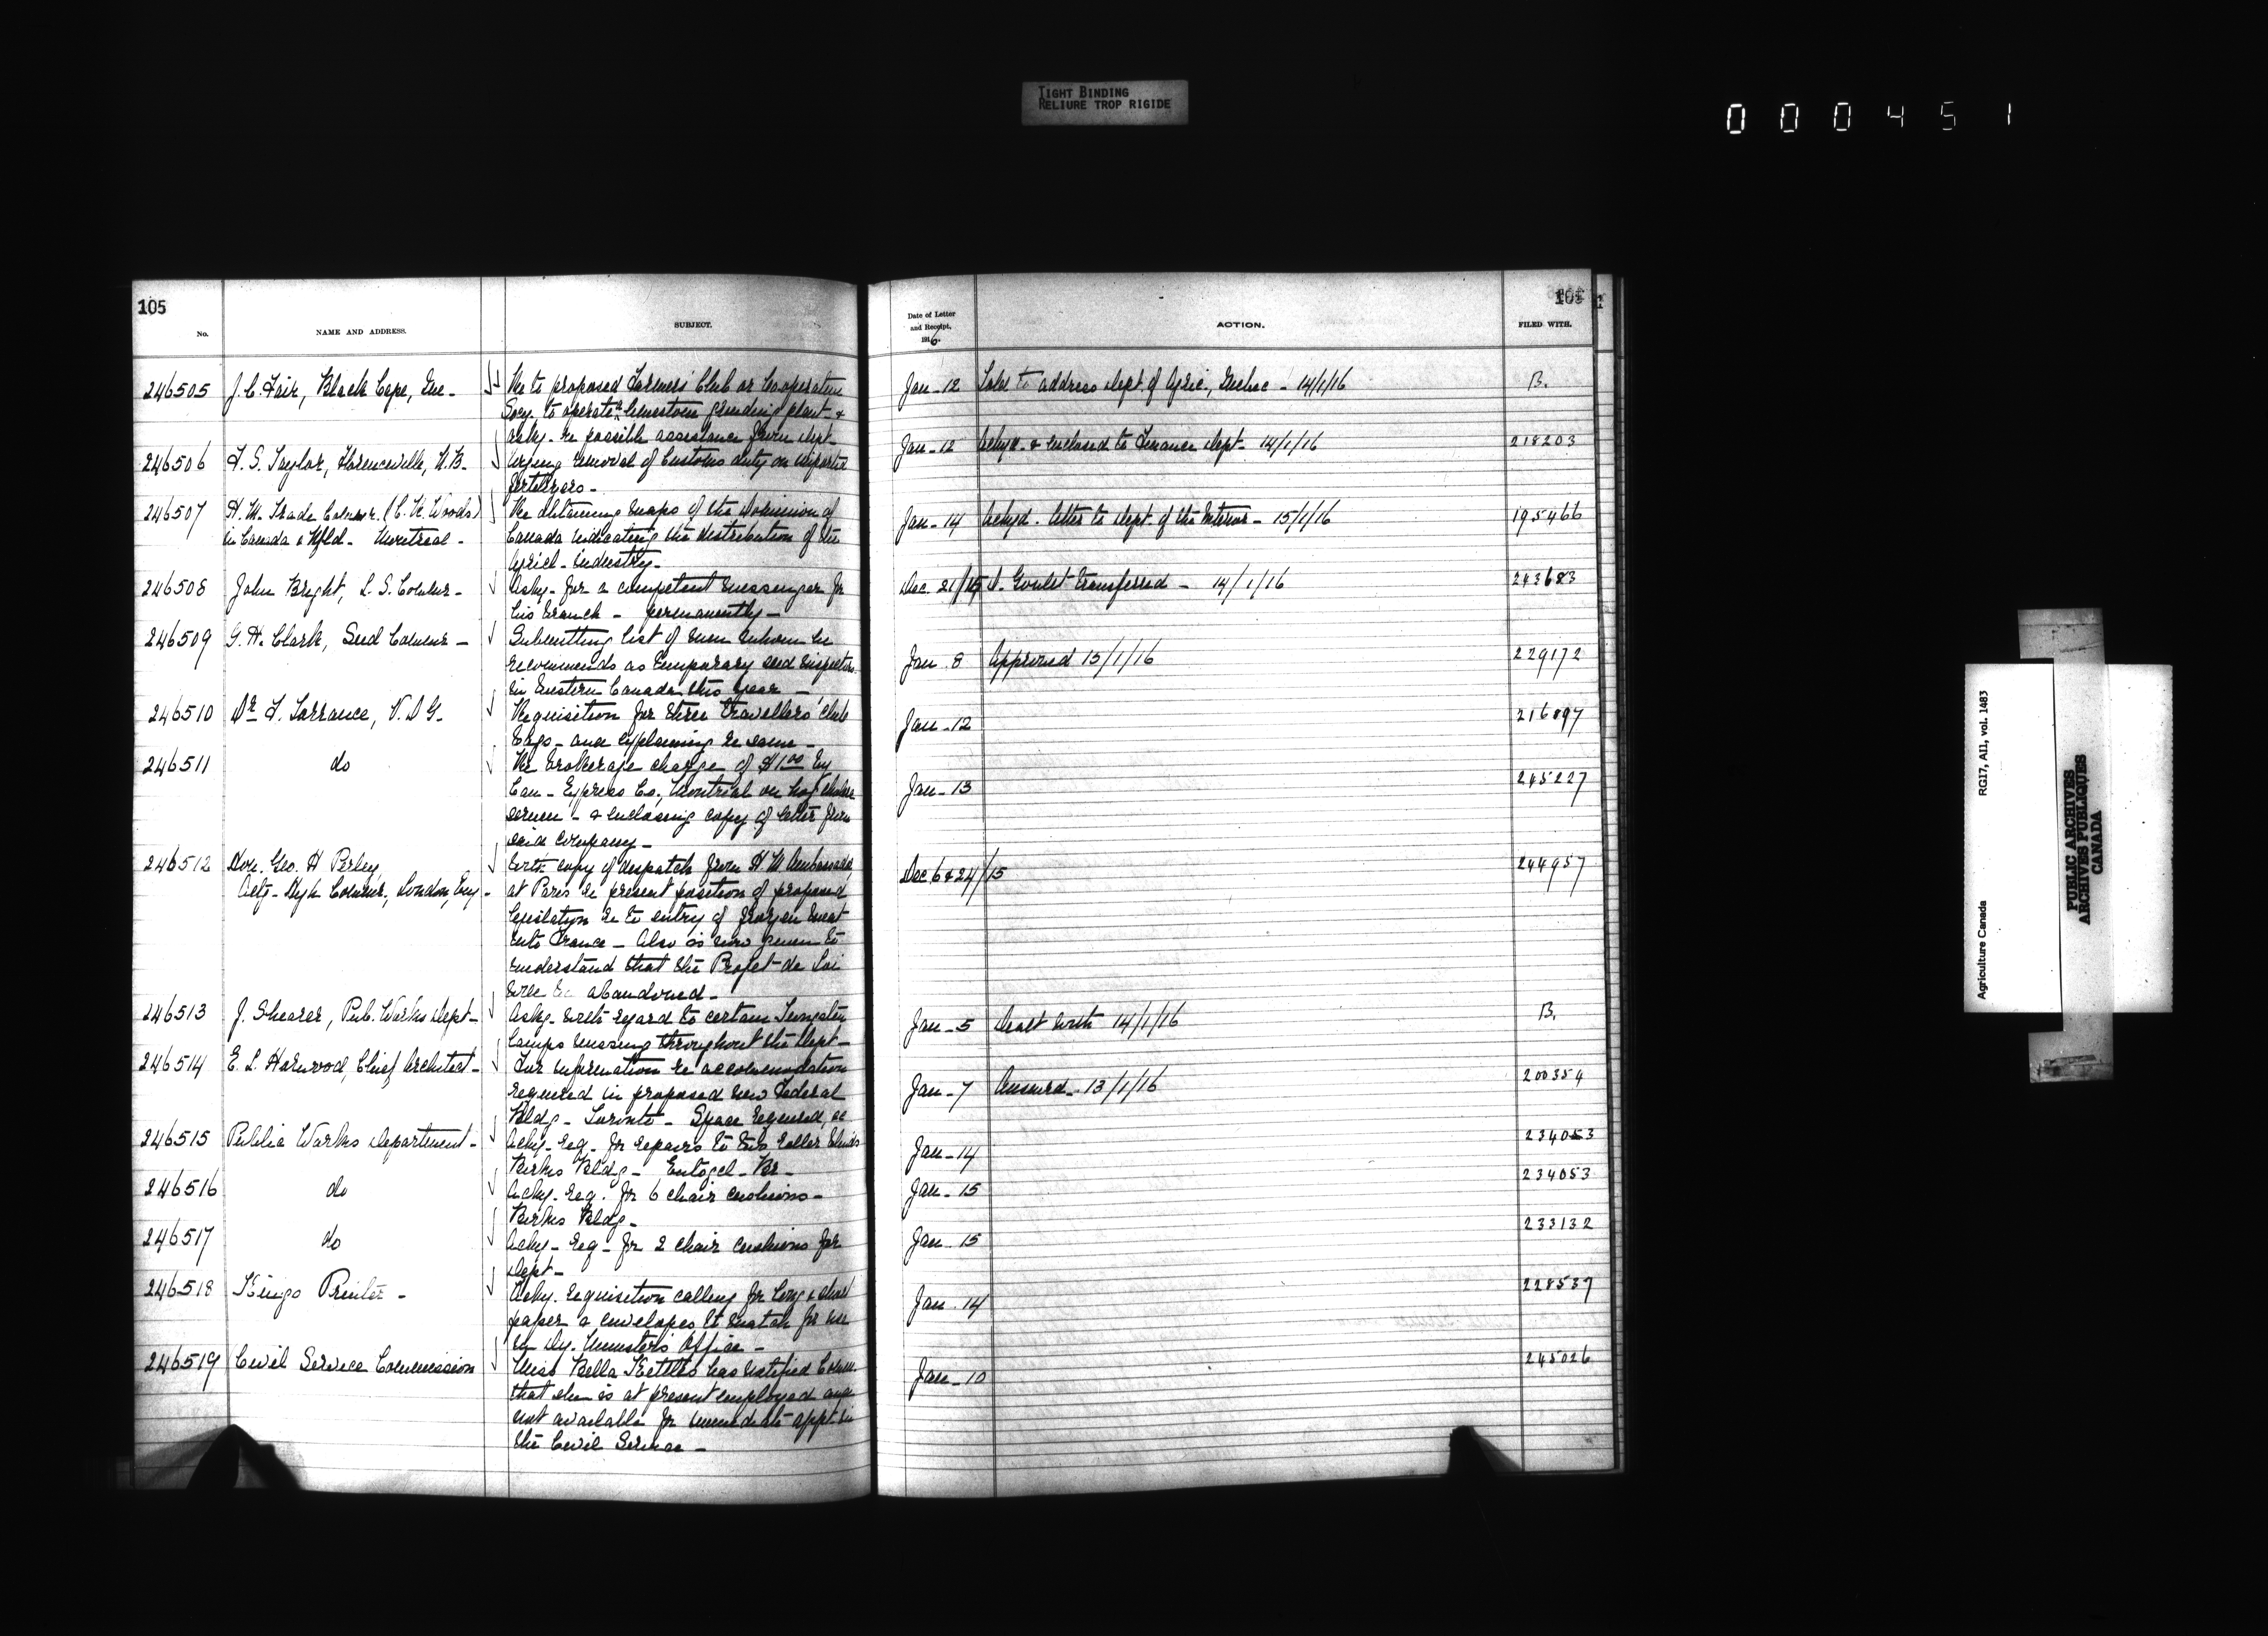 TIGHT BINDING
RELIURE TROP RIGIDE
000451
105
No.
NAME AND ADDRESS.
SUBJECT.
246505 J. C. Fair, Black Cape, Que-
Re to proposed Farmers' Club or Cooperative
Socy. to operate limestone grinding plant &
askg. re possible assistance from Dept-
246506 F. S. Taylor, Florenceville, N.B.
Urging removal of Customs duty on imported
fertilizers-
246507 H. M. Trade Commr. (C. H. Woods)
in Canada & Nfld- Montreal-
Re obtaining maps of the Dominion of
Canada indicating the distribution of the
Agricl- industry-
246508 John Bright, L. S. Commr-
Askg- for a competent messenger for
his Branch- permanently-
246509 G. H. Clark, Seed Commr-
Submitting list of men whom he
recommends as temporary seed inspectors
in Eastern Canada this year-
246510 Dr. F. Torrance, V. D G.
Requisition for three travellers' club
bags- and explaining re same-
246511 do
Re brokerage charge of $1.00 by
Can- Express Co., Montreal on hog cholera
serum- & enclosing copy of letter from
said company-
246512 Hon. Geo. H Perley,
Actg- High Commr, London, Eng-
With copy of despatch from H M Ambassador
at Paris re present position of proposed
legislation re to entry of frozen meat
into France- Also is now given to
understand that the Projet-de Loi
will be abandoned-
246513 J. Shearer, Pub. Works Dept-
Askg- with regard to certain Tungsten
lamps missing throughout the Dept-
246514 E. L. Horwood, Chief Architect-
For information re accommodation
required in proposed new Federal
Bldg- Toronto- Space required, &c
246515 Public Works Department-
Ackg- req- for repairs to two roller blinds
Birks Bldg- Entogcl- Br-
246516 do
Ackg- req. for 6 chair cushions-
Birks Bldg-
246517 do
Ackg- req- for 2 chair cushions for
Dept-
246518 Kings Printer-
Ackg. requisition calling for long & short
paper & envelopes to match for use
in Dy. Minister's Office-
246519 Civil Service Commission
Miss Bella Kettles has notified Comm.
that she is at present employed and
not available for immediate appt- in
the Civil Service-
Date of Letter
and Receipt,
1916.
ACTION.
FILED WITH.
105
Jan-12 Told to address Dept. of Agric., Quebec- 14/1/16 B.
Jan-12 Ackgd. & enclosed to Finance Dept- 14/1/16 218203
Jan-14 Ackgd. letter to Dept. of the Interior- 15/1/16 195466
Dec. 21/15 Goulet transferred- 14/1/16 243683
Jan 8 Approved 15/1/16 229172
Jan-12 216097
Jan-13 245227
Dec 6 & 24/15 244957
Jan-5 Dealt with 14/1/16 B.
Jan-7 Answrd- 13/1/16 200354
Jan-14 234053
Jan-15 234053
Jan-15 233132
Jan-14 228537
Jan-10 245026
Agriculture Canada
RG17, AI1, vol. 1483
PUBLIC ARCHIVES
ARCHIVES PUBLIQUES
CANADA